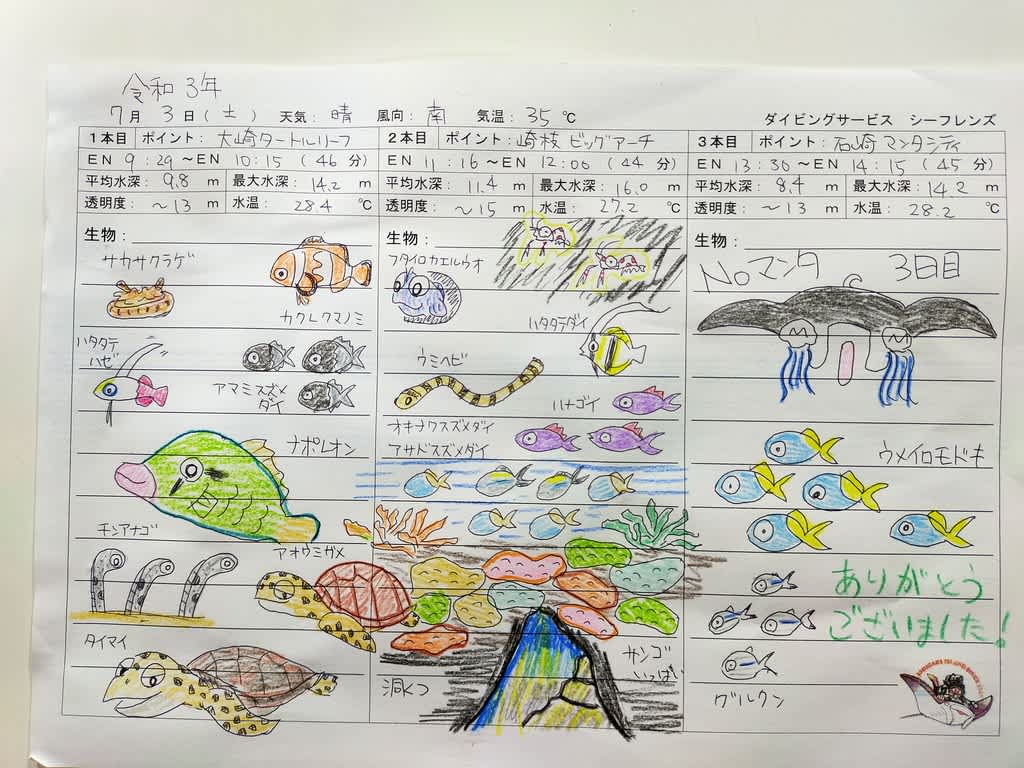 令和3年
7月 3日(土) 天気:晴 風向:南 気温:35℃
ダイビングサービス シーフレンズ
1本目 ポイント:大崎タートルリーフ
EN 9:29~EN 10:15 (46分)
平均水深:9.8 m 最大水深:14.2 m
透明度:~13 m 水温:28.4 ℃
生物:
カクレクマノミ
ハタタテ
ハゼ
アマミスズメ
ダイ
ナポレオン
チンアナゴ
アオウミガメ
タイマイ
2本目 ポイント:崎枝 ビッグアーチ
EN 11:16~EN 12:00 (44分)
平均水深:11.4 m 最大水深:16.0 m
透明度:~15 m 水温:27.2 ℃
生物:
フタイロカエルウオ
ハタタテダイ
ウミヘビ
ハナゴイ
オキナワスズメダイ
アサドスズメダイ
サンゴ
いっぱい
洞くつ
3本目 ポイント:石崎 マンタシティ
EN 13:30~EN 14:15 (45分)
平均水深:8.4 m 最大水深:14.2 m
透明度:~13 m 水温:28.2 ℃
生物:
Noマンタ 3日目
ウメイロモドキ
ありがとう
ございました!
グルクン